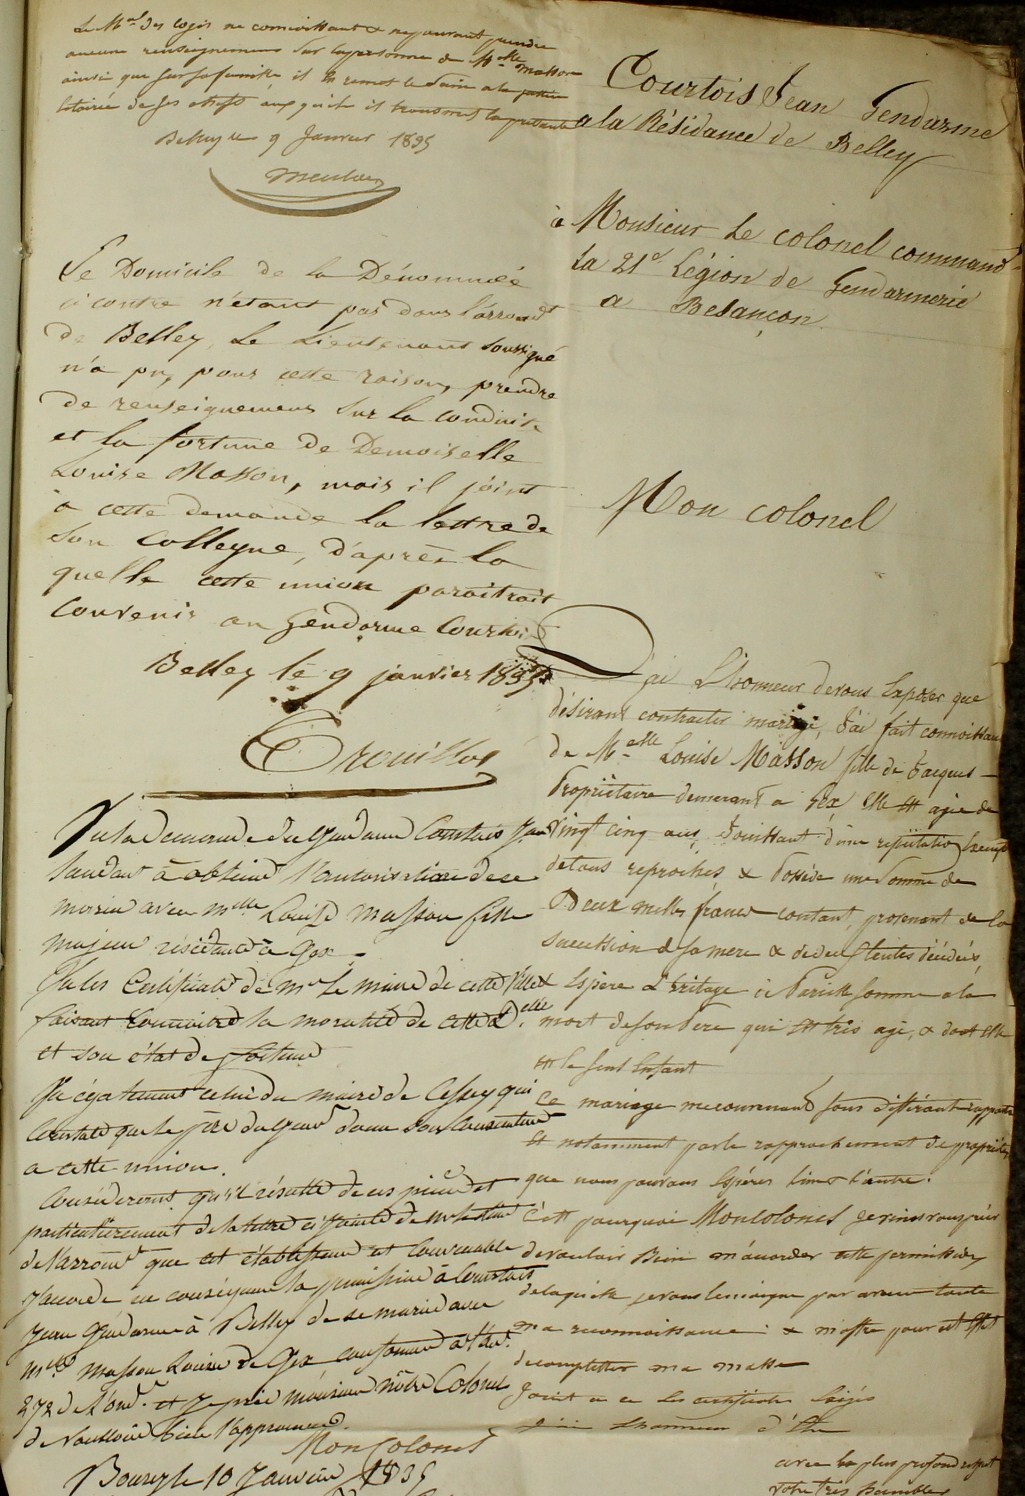 Le M.al des logis ne connoissant & ne pouvant prendre
aucun renseignemens sur la personne de M.elle Masson
ainsi que sur sa famille il s'en remet le soin a la
de ses chefs auxquels il transmet la présente
Belley le 9 Janvier 1835
Le Domicile de la Dénommée
ci contre n'étant pas dans l'arrond.t
de Belley, Le Lieutenant soussigné
n'a pu, pour cette raison, prendre
de renseignemens sur la conduite
et la fortune de Demoiselle
Louise Masson, mais il joint
à cette demande la lettre de
son Collegue, d'après la
quelle cette union paraîtrait
convenir au Gendarme Courtois
Belley le 9 janvier 1835
Trouillot
Vu la demande du Gendarme Courtois Jean
tendant à obtenir l'autorisation de se
marier avec M.elle Louise Masson fille
majeur résidante à Gex.
Vu les Certificats de M.r le maire de cette ville
faisant connaitre la moralité de cette d.elle
et son état de fortune
Vu également celui du maire de Cessey qui
constate que le père du Gend. donne son consentement
a cette union.
Considerant qu'il résulte de ces pièces et
particulièrement de la lettre ci jointe de M.r le Lieut.
de l'arrond.t que cet établissement est convenable
J'accorde en conséquence la permission à Courtois
Jean Gendarme à Belley de se marier avec
M.elle Masson Louise de Gex conformément à l'art.
272 de l'ord.ce et je prie monsieur nôtre Colonel
de vouloir bien l'approuver.
Mon Colonel
Bourg le 10 Janvier 1835
Courtois Jean Gendarme
a la Résidance de Belley
à Monsieur Le colonel command.t
la 21e Légion de Gendarmerie
a Besançon.
Mon colonel
J'ai L'honneur de vous Exposer que
désirant contracter mariage, J'ai fait connoissance
de M.elle Louise Masson fille de Jacques
Propriétaire demeurant a Gex, elle est agée de
vingt cinq ans, Jouissant d'une reputation Exempte
de tous reproches, & Posséde une Somme de
Deux milles francs contant, provenant de la
succession de sa mere & de deux tentes décédées,
& Espère d'héritage a Pareille somme a la
mort de son Père qui est très agé, & dont elle
est le seul Enfant
Ce mariage me convenant sous différants rapports
et notamment par le rapprochement de propriétés
que nous pouvons Espérer l'un & l'autre.
C'est pourquoi Mon Colonel Je viens vous prier
de vouloir Bien m'accorder cette permission
de laquelle je vous témoigne par avance toute
ma reconnoissance : & m'offre pour cet effet
de completter ma masse
Joint a ce les certificats Exigés
J'ai L'honneur d'être
avec le plus profond respect
votre très humble